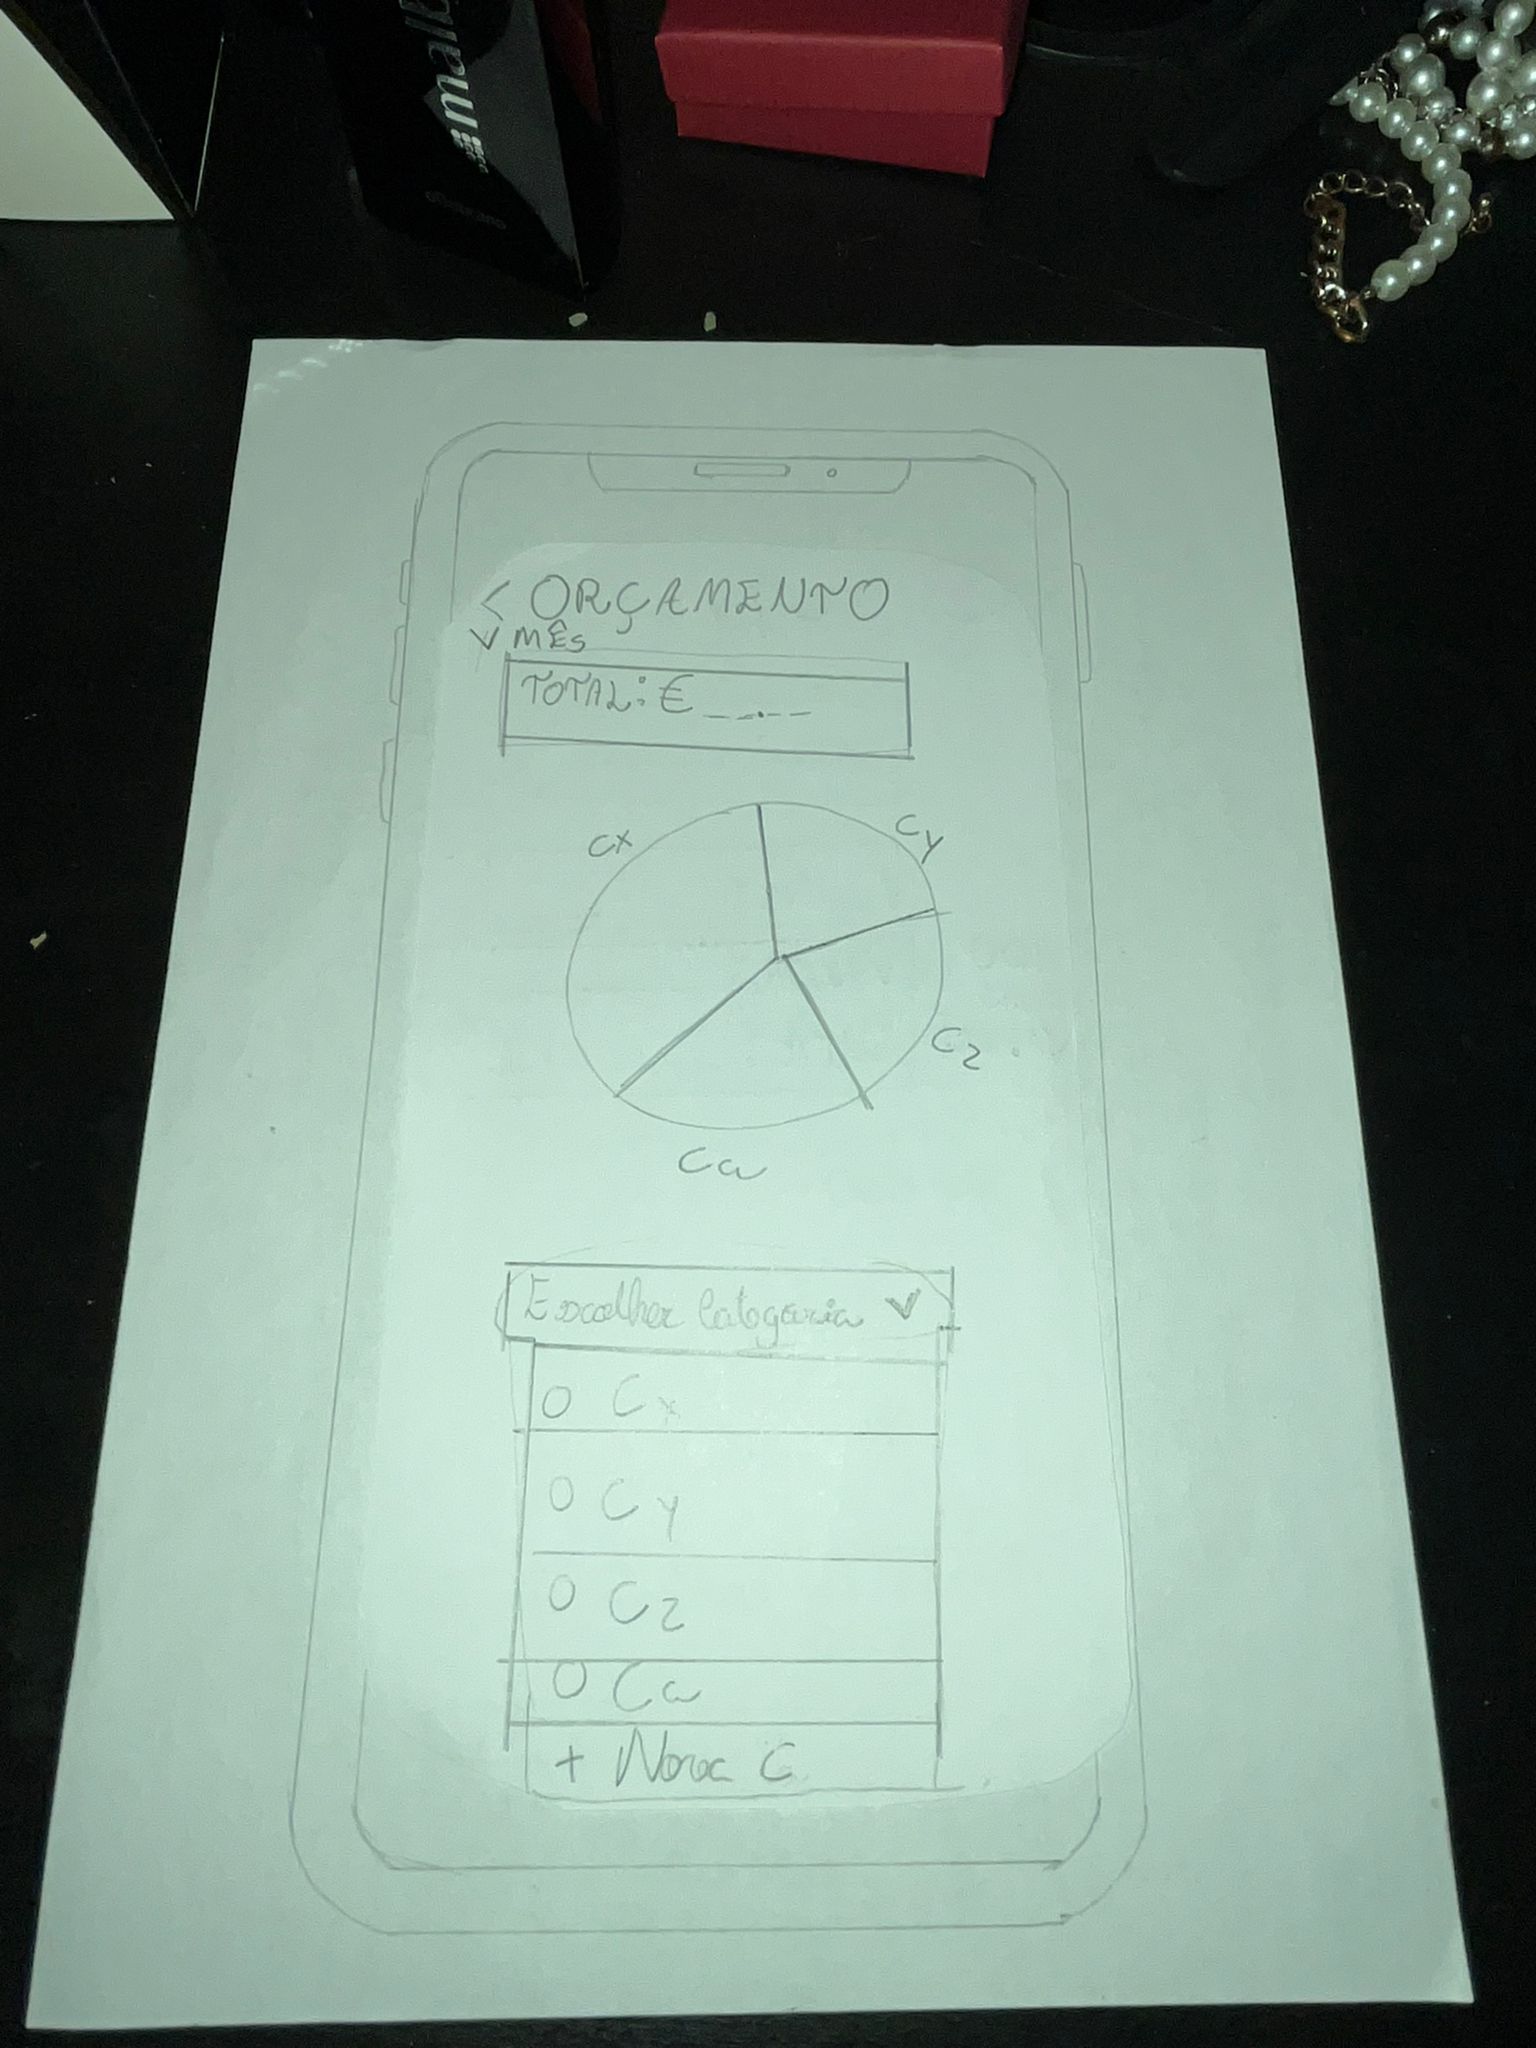 mall
< ORÇAMENTO
V MÊS
TOTAL: € __.__
Cx
Cy
Cz
Ca
Escolher Categoria V
O Cx
O Cy
O Cz
O Ca
+ Nova C